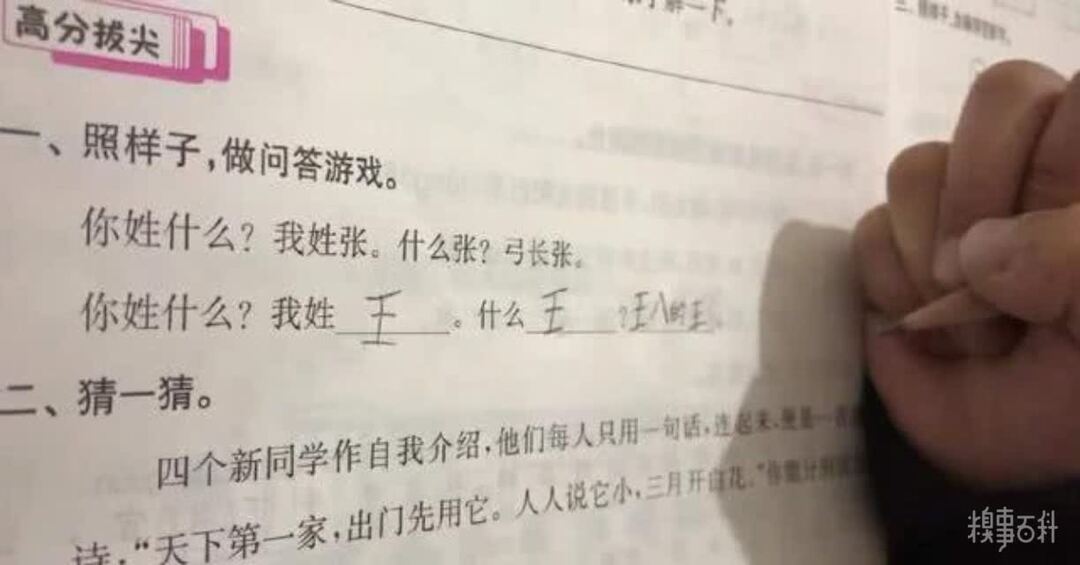 解一下。
高分拔尖
一、照样子,做问答游戏。
你姓什么?我姓张。什么张?弓长张。
你姓什么?我姓王。什么王?王八的王。
二、猜一猜。
四个新同学作自我介绍,他们每人只用一句话,连起来,便是一首
诗:“天下第一家,出门先用它。人人说它小,三月开白花。”你能计
糗事百科